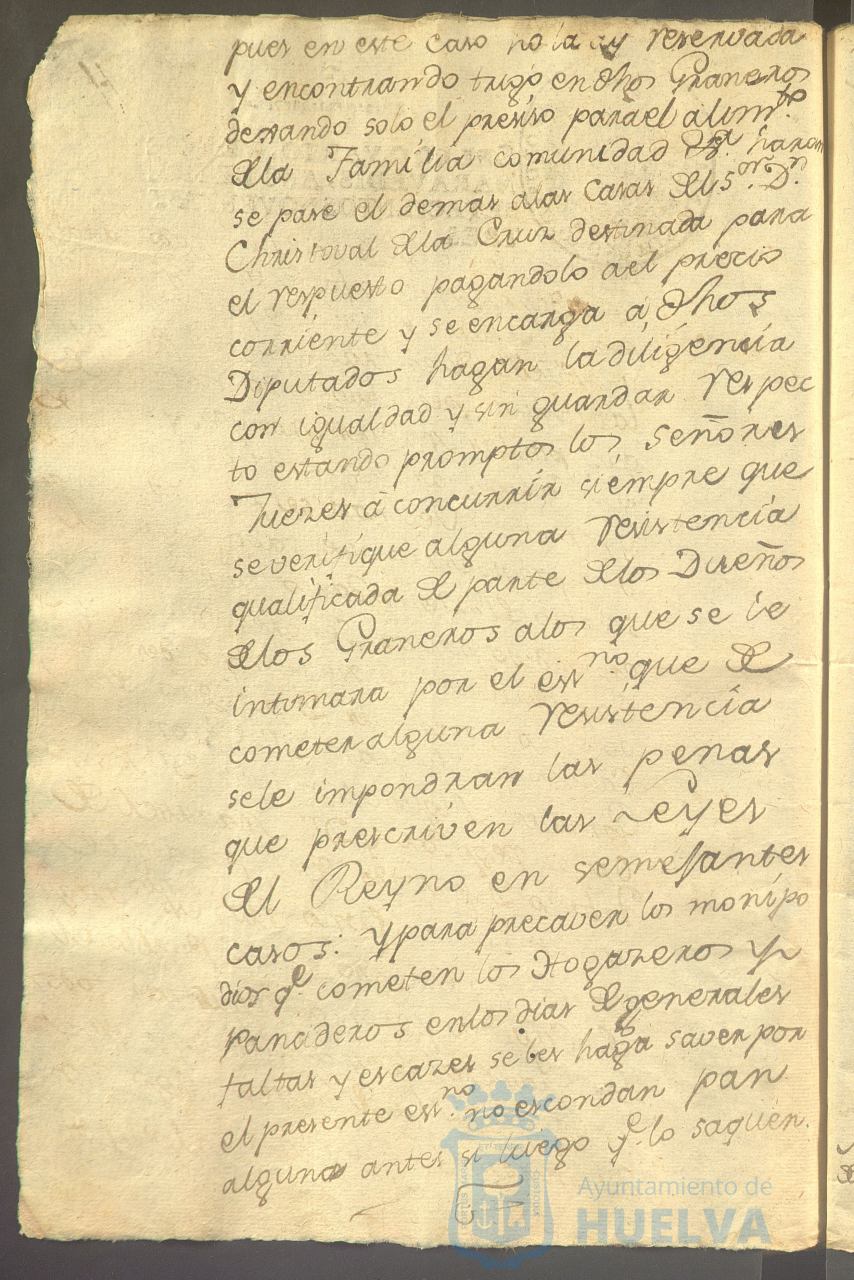 pues en este caso no la ay reservada
y encontrando trigo en dhos Graneros
dexando solo el preciso para el alim.to
de la Familia comunidad &.a haran
se pase el demas a las Casas del S.or D.n
Christoval de la Cruz destinada para
el respuesto pagandolo a el precio
corriente y se encarga á dhos
Diputados hagan la diligencia
con igualdad y sin guardar respec
to estando promptos los señores
Juezes á concurrir siempre que
se verifique alguna resistencia
qualificada de parte de los Dueños
de los Graneros a los que se le
intimara por el ess.no que de
cometer alguna resistencia
se le impondran las penas
que prescriven las Leyes
del Reyno en semejantes
casos: y para precaver los monipo
dios q.e cometen los Hogazeros y
Panaderos en los dias de generales
faltas y escazes se les haga saver por
el presente ess.no no escondan pan
alguno antes si luego q.e lo saquen
Ayuntamiento de
HUELVA